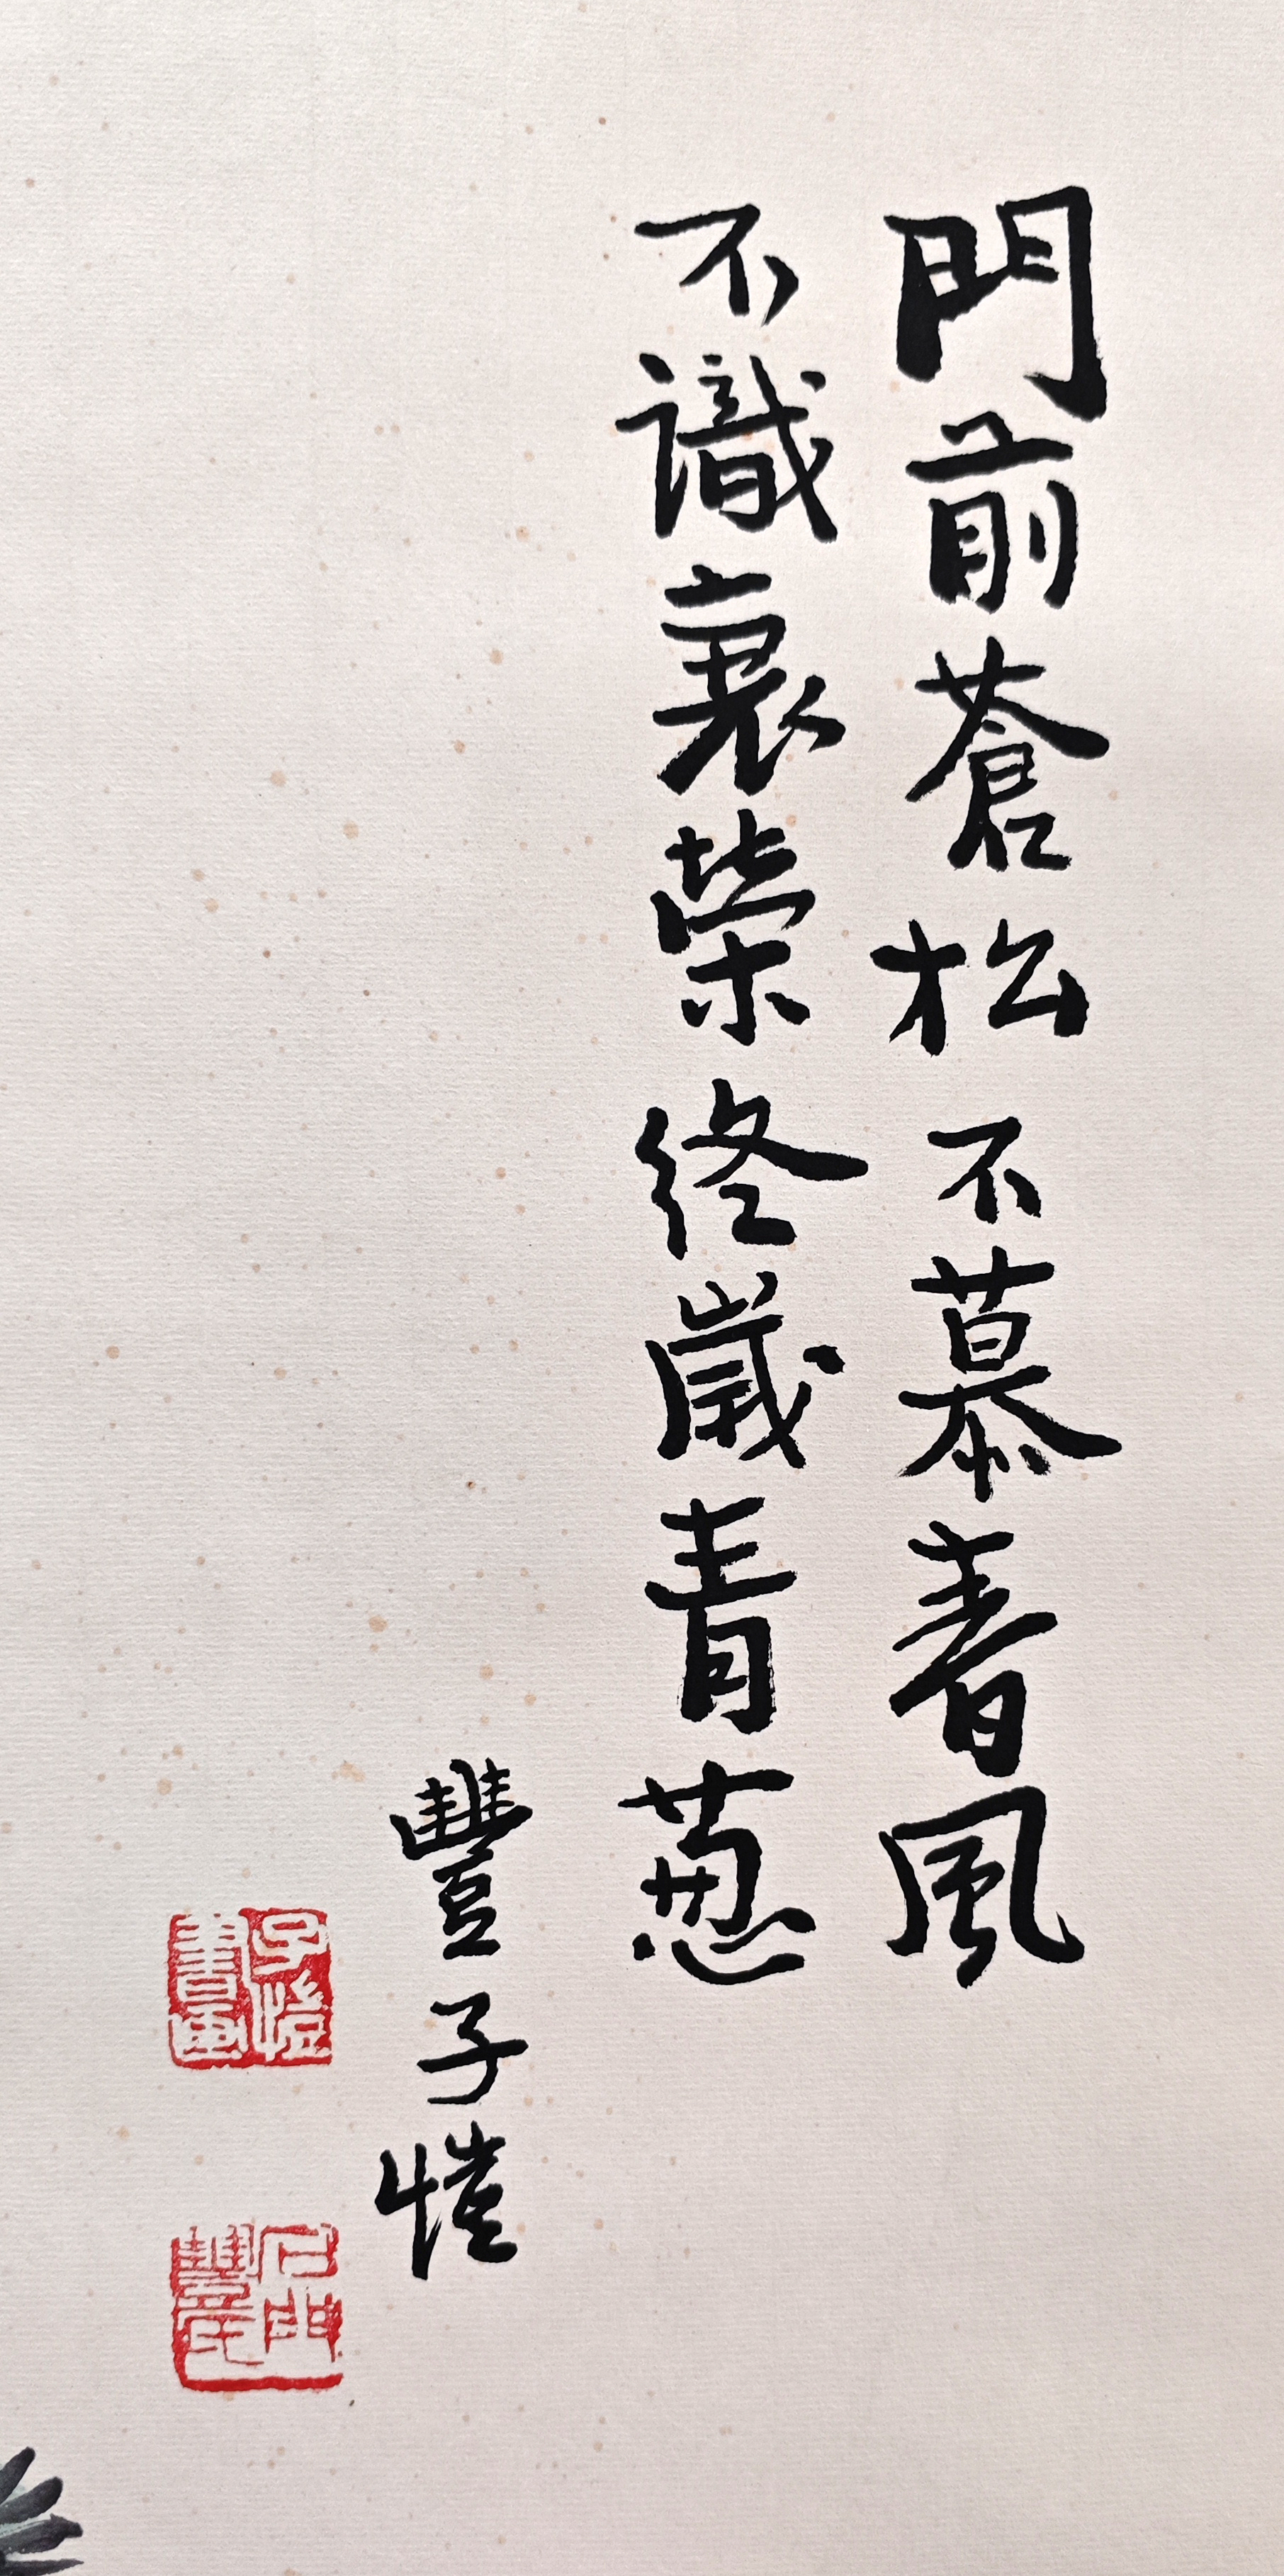 門前蒼松不慕春風
不識衰榮終歲青葱
豐子愷
子愷書畫
石門豐氏